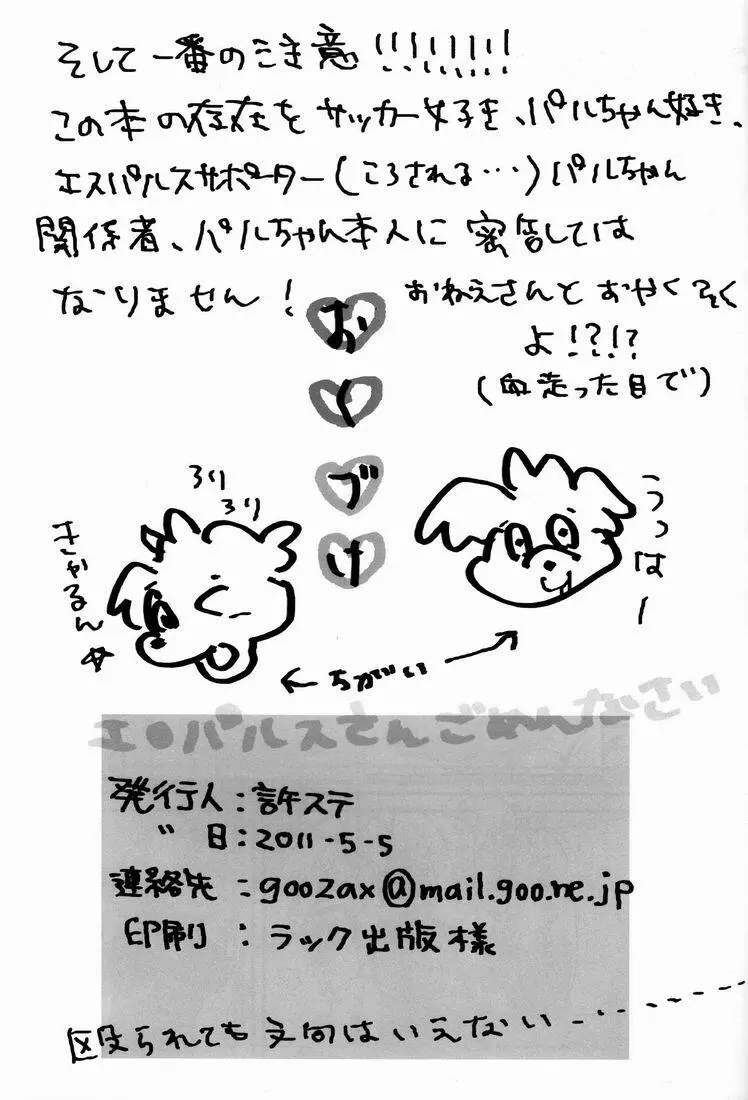 そして一番のご注意!!!!!!!!
この本の存在をサッカー好き、パルちゃん好き、
エスパルスサポーター(ころされる…)パルちゃん
関係者、パルちゃん本人に密告しては
なりません!
おねえさんとおやくそく
よ!?!?
(血走った目で)
おくづけ
ろり
ろり
きゃるん☆
うっはー
← ちがい →
エ●パルスさんごめんなさい
発行人:許ステ
〃 日:2011-5-5
連絡先:goozax@mail.goo.ne.jp
印刷:ラック出版様
殴られても文句はいえない……